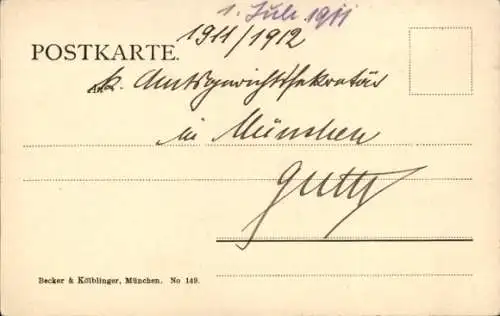 1. Juli 1911
1911/1912
POSTKARTE.
k. Amtsgerichtssekretär
in München
Becker & Kölblinger, München. No 149.